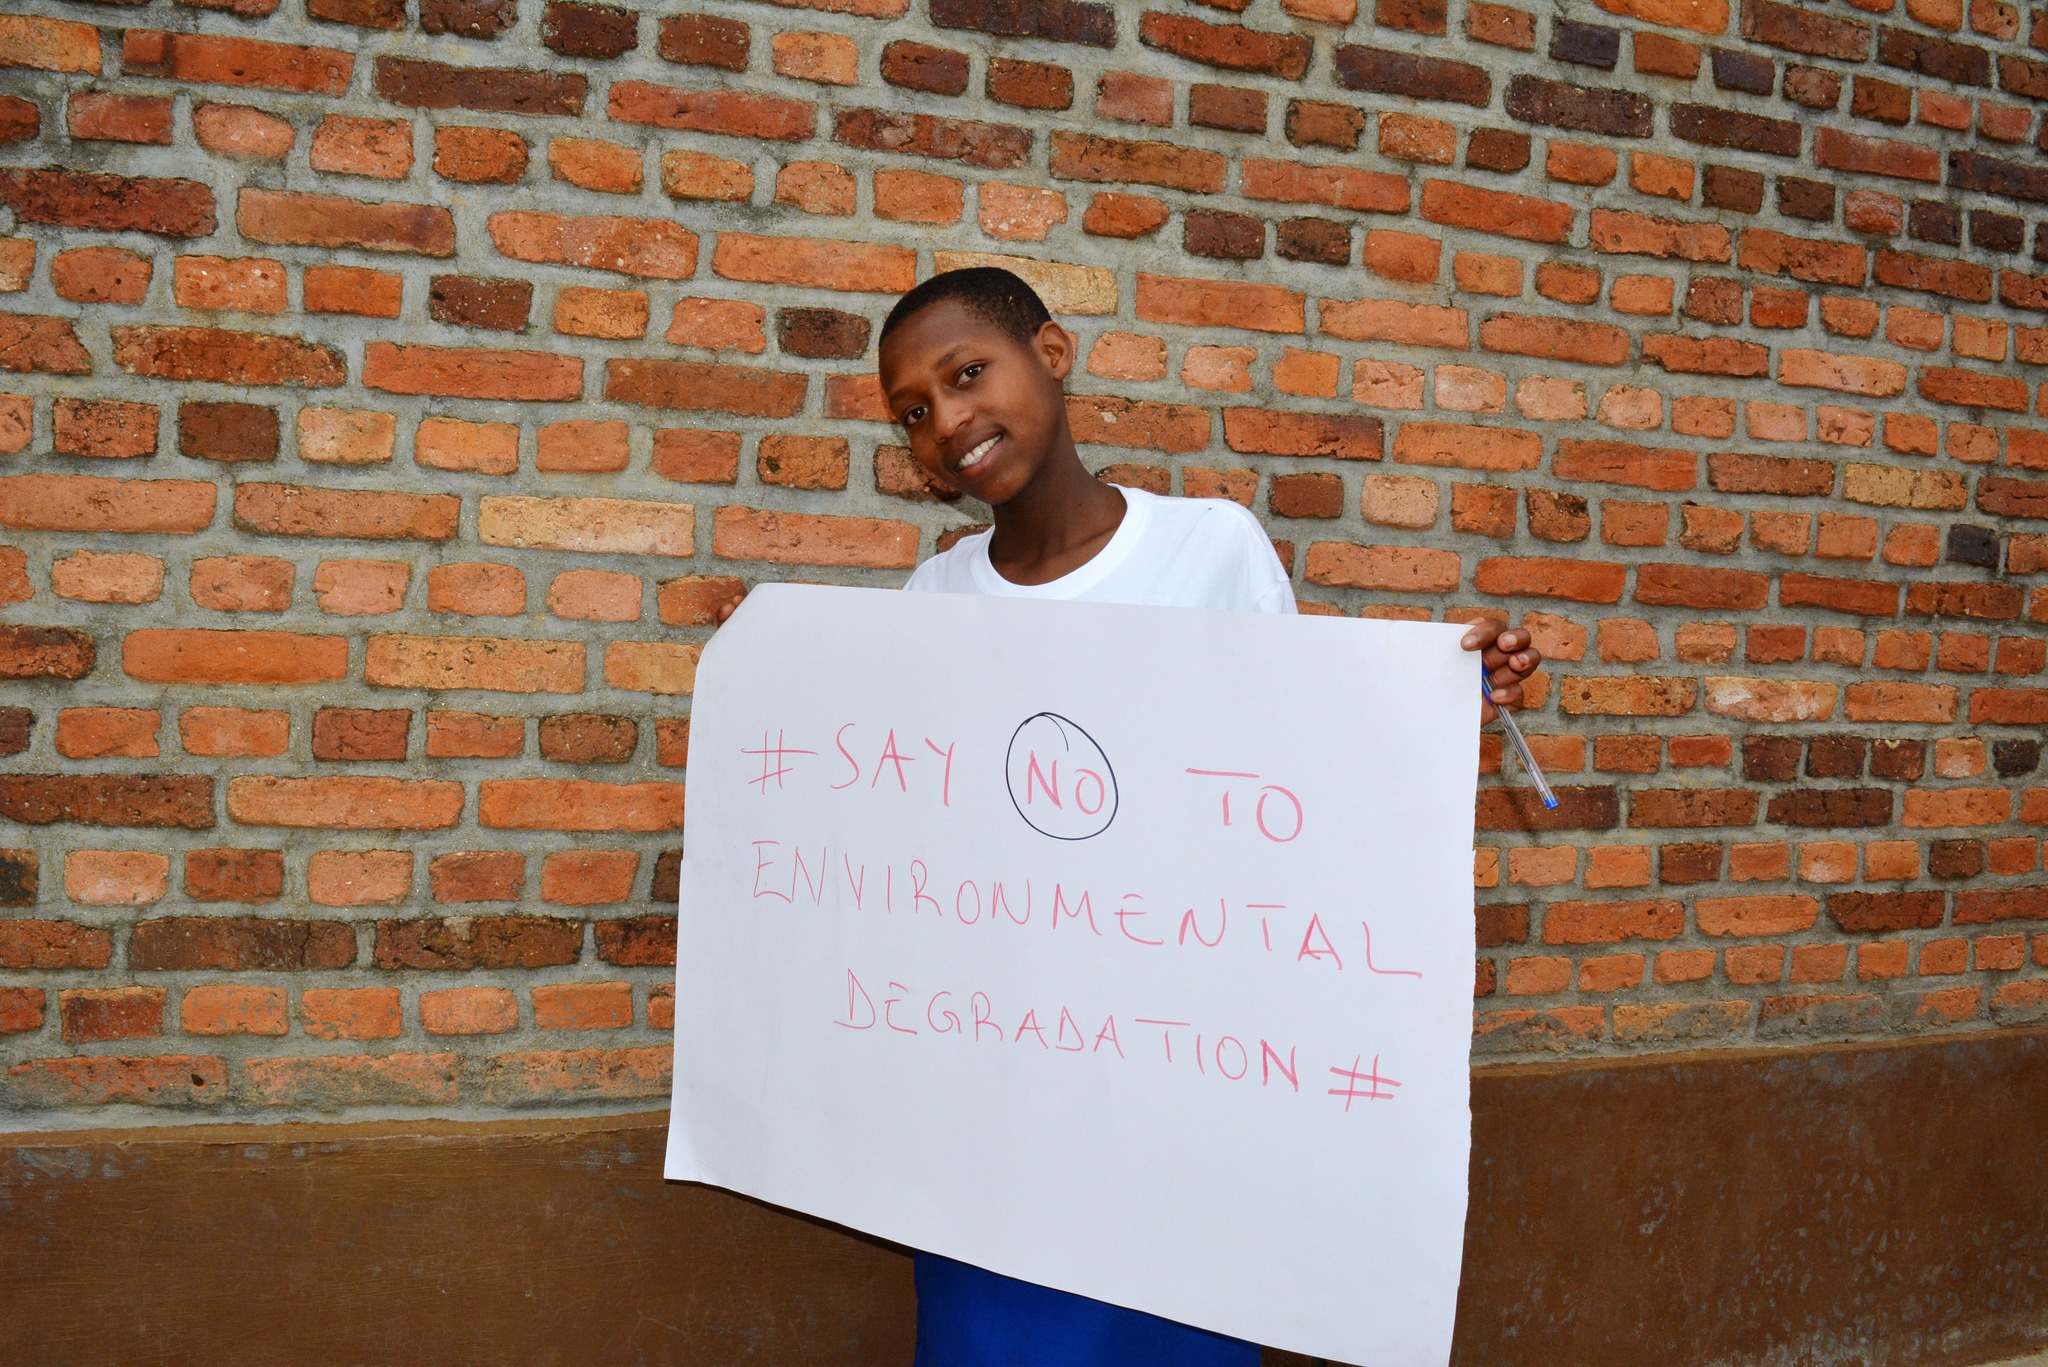 #SAY NO TO
ENVIRONMENTAL
DEGRADATION#